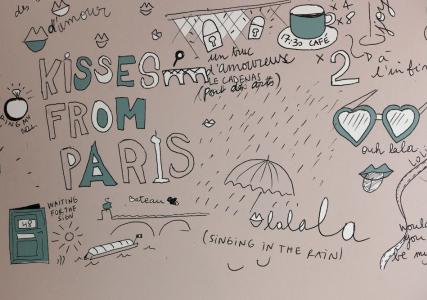 des
d'amour
KISSES
FROM
PARIS
un truc
d'amoureux
LE CADENAS
(Pont des arts)
17:30 CAFÉ
x 4
x 8
x 2
D à
l'infin
ouh lala
WAITING
FOR THE
SIGN
48
Bateau
lalala
(SINGING IN THE RAIN)
would
you
be my